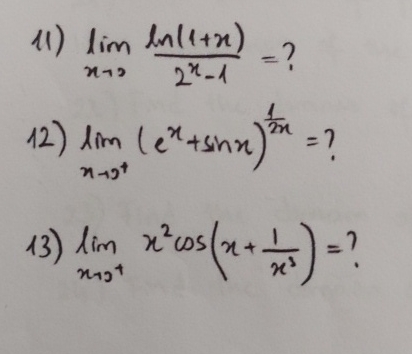 11) lim x→0 ln(1+x)/(2^x-1) = ?
12) lim x→0⁺ (e^x+sinx)^(1/2x) = ?
13) lim x→0⁺ x²cos(x+1/x³) = ?